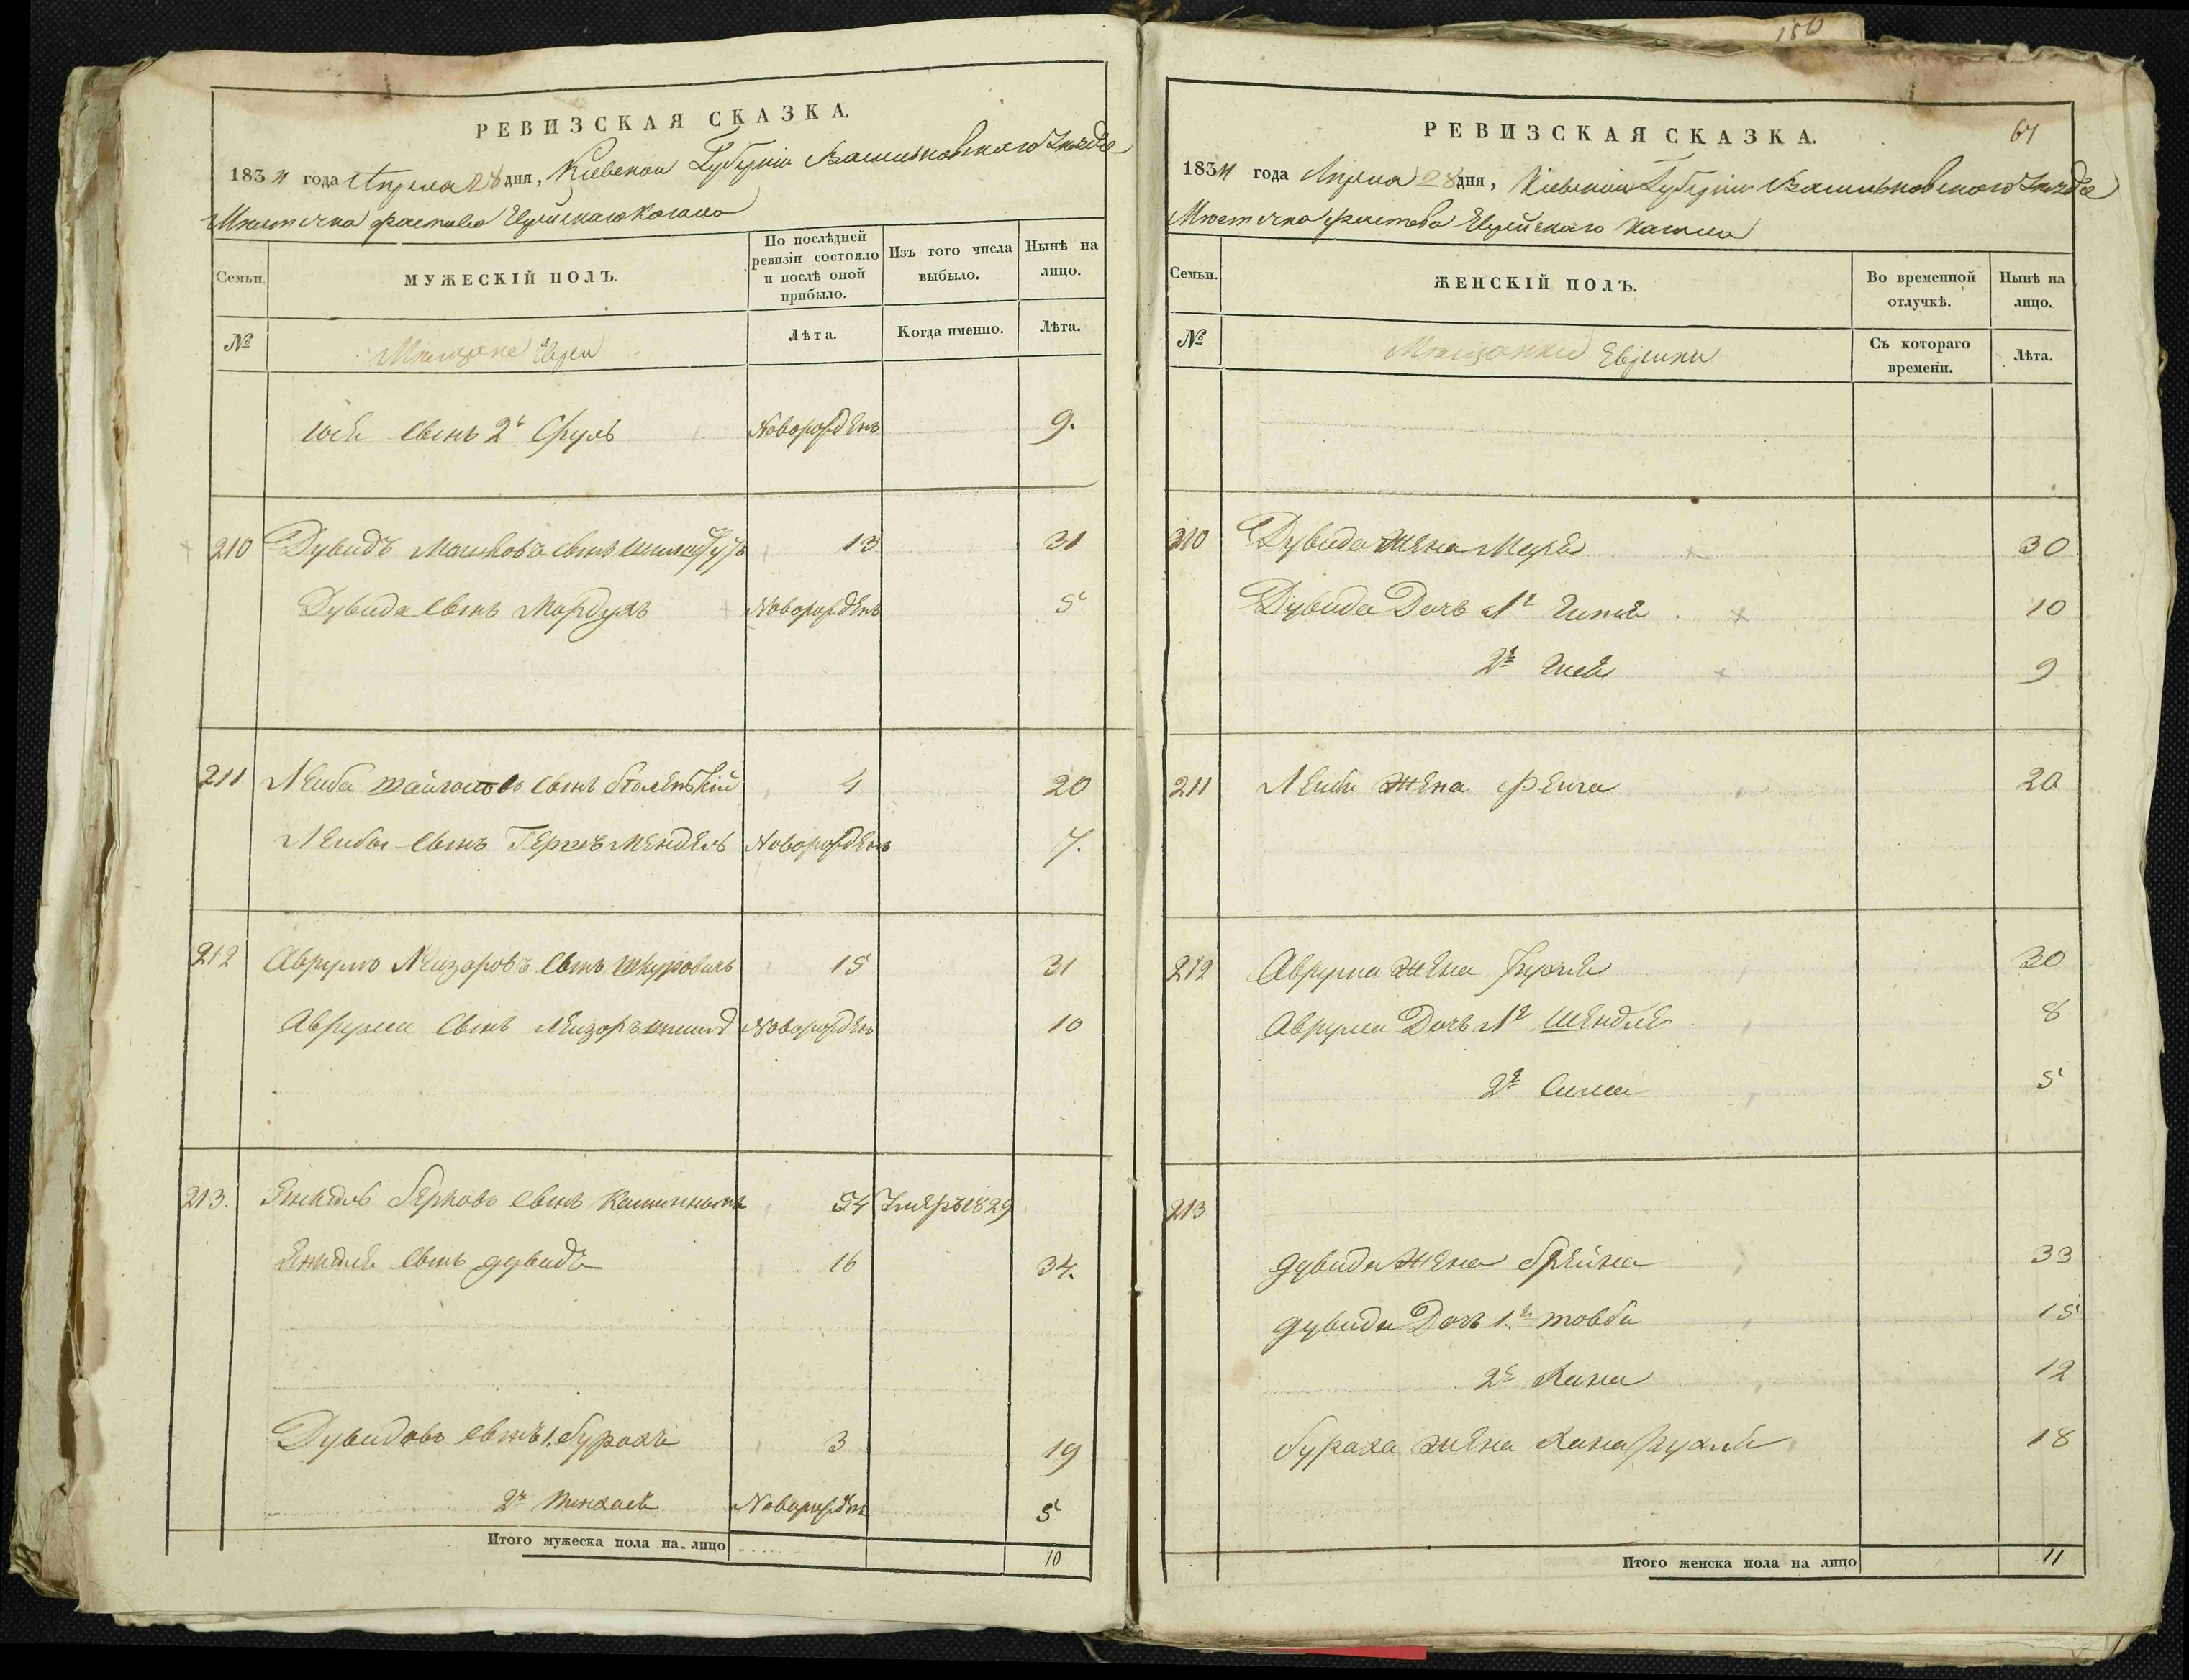 150
РЕВИЗСКАЯ СКАЗКА.
1834 года Апреля 28 дня, Киевской Губернии Васильковского Уезда
Местечка Фастова Еврейского Кагала
Семьи.
МУЖЕСКІЙ ПОЛЪ.
По послѣдней ревизіи состояло и послѣ оной прибыло.
Изъ того числа выбыло.
Нынѣ на лицо.
№
Мещане Евреи
Лѣта.
Когда именно.
Лѣта.
сынъ 2й Сруль Новорожденъ 9.
210 Дувидъ Мошковъ сынъ 13 31
Дувида сынъ Мордухъ Новорожденъ 5
211 Лейба сынъ 4 20
Лейбы сынъ Гершъ Мендель Новорожденъ 7.
212 Аврумъ Лейзоровъ сынъ Шкуровичъ 15 31
Аврума сынъ Лейзоръ Новорожденъ 10
213. Берковъ сынъ 54 Умеръ 1829
сынъ дувидъ 16 34.
Дувидовъ сынъ 1. бурахъ 3 19
2й Пинхасъ Новорожденъ 5
Итого мужеска пола на-лицо 10
РЕВИЗСКАЯ СКАЗКА. 61
1834 года Апреля 28 дня, Киевской Губернии Васильковского Уезда
Местечка Фастова Еврейского Кагала
Семьи.
ЖЕНСКІЙ ПОЛЪ.
Во временной отлучкѣ.
Нынѣ на лицо.
№
Мещанки Еврейки
Съ котораго времени.
Лѣта.
210 Дувида жена 30
Дувида Дочь 1я 10
2я 9
211 Лейбы жена Фейга 20
212 Аврума жена Рухля 30
Аврума Дочь 1я Шендля 8
2я Сима 5
213
дувида жена брейна 33
дувида Дочь 1я товба 15
2я Хана 12
бураха жена Хана Рухля 18
Итого женска пола на лицо 11